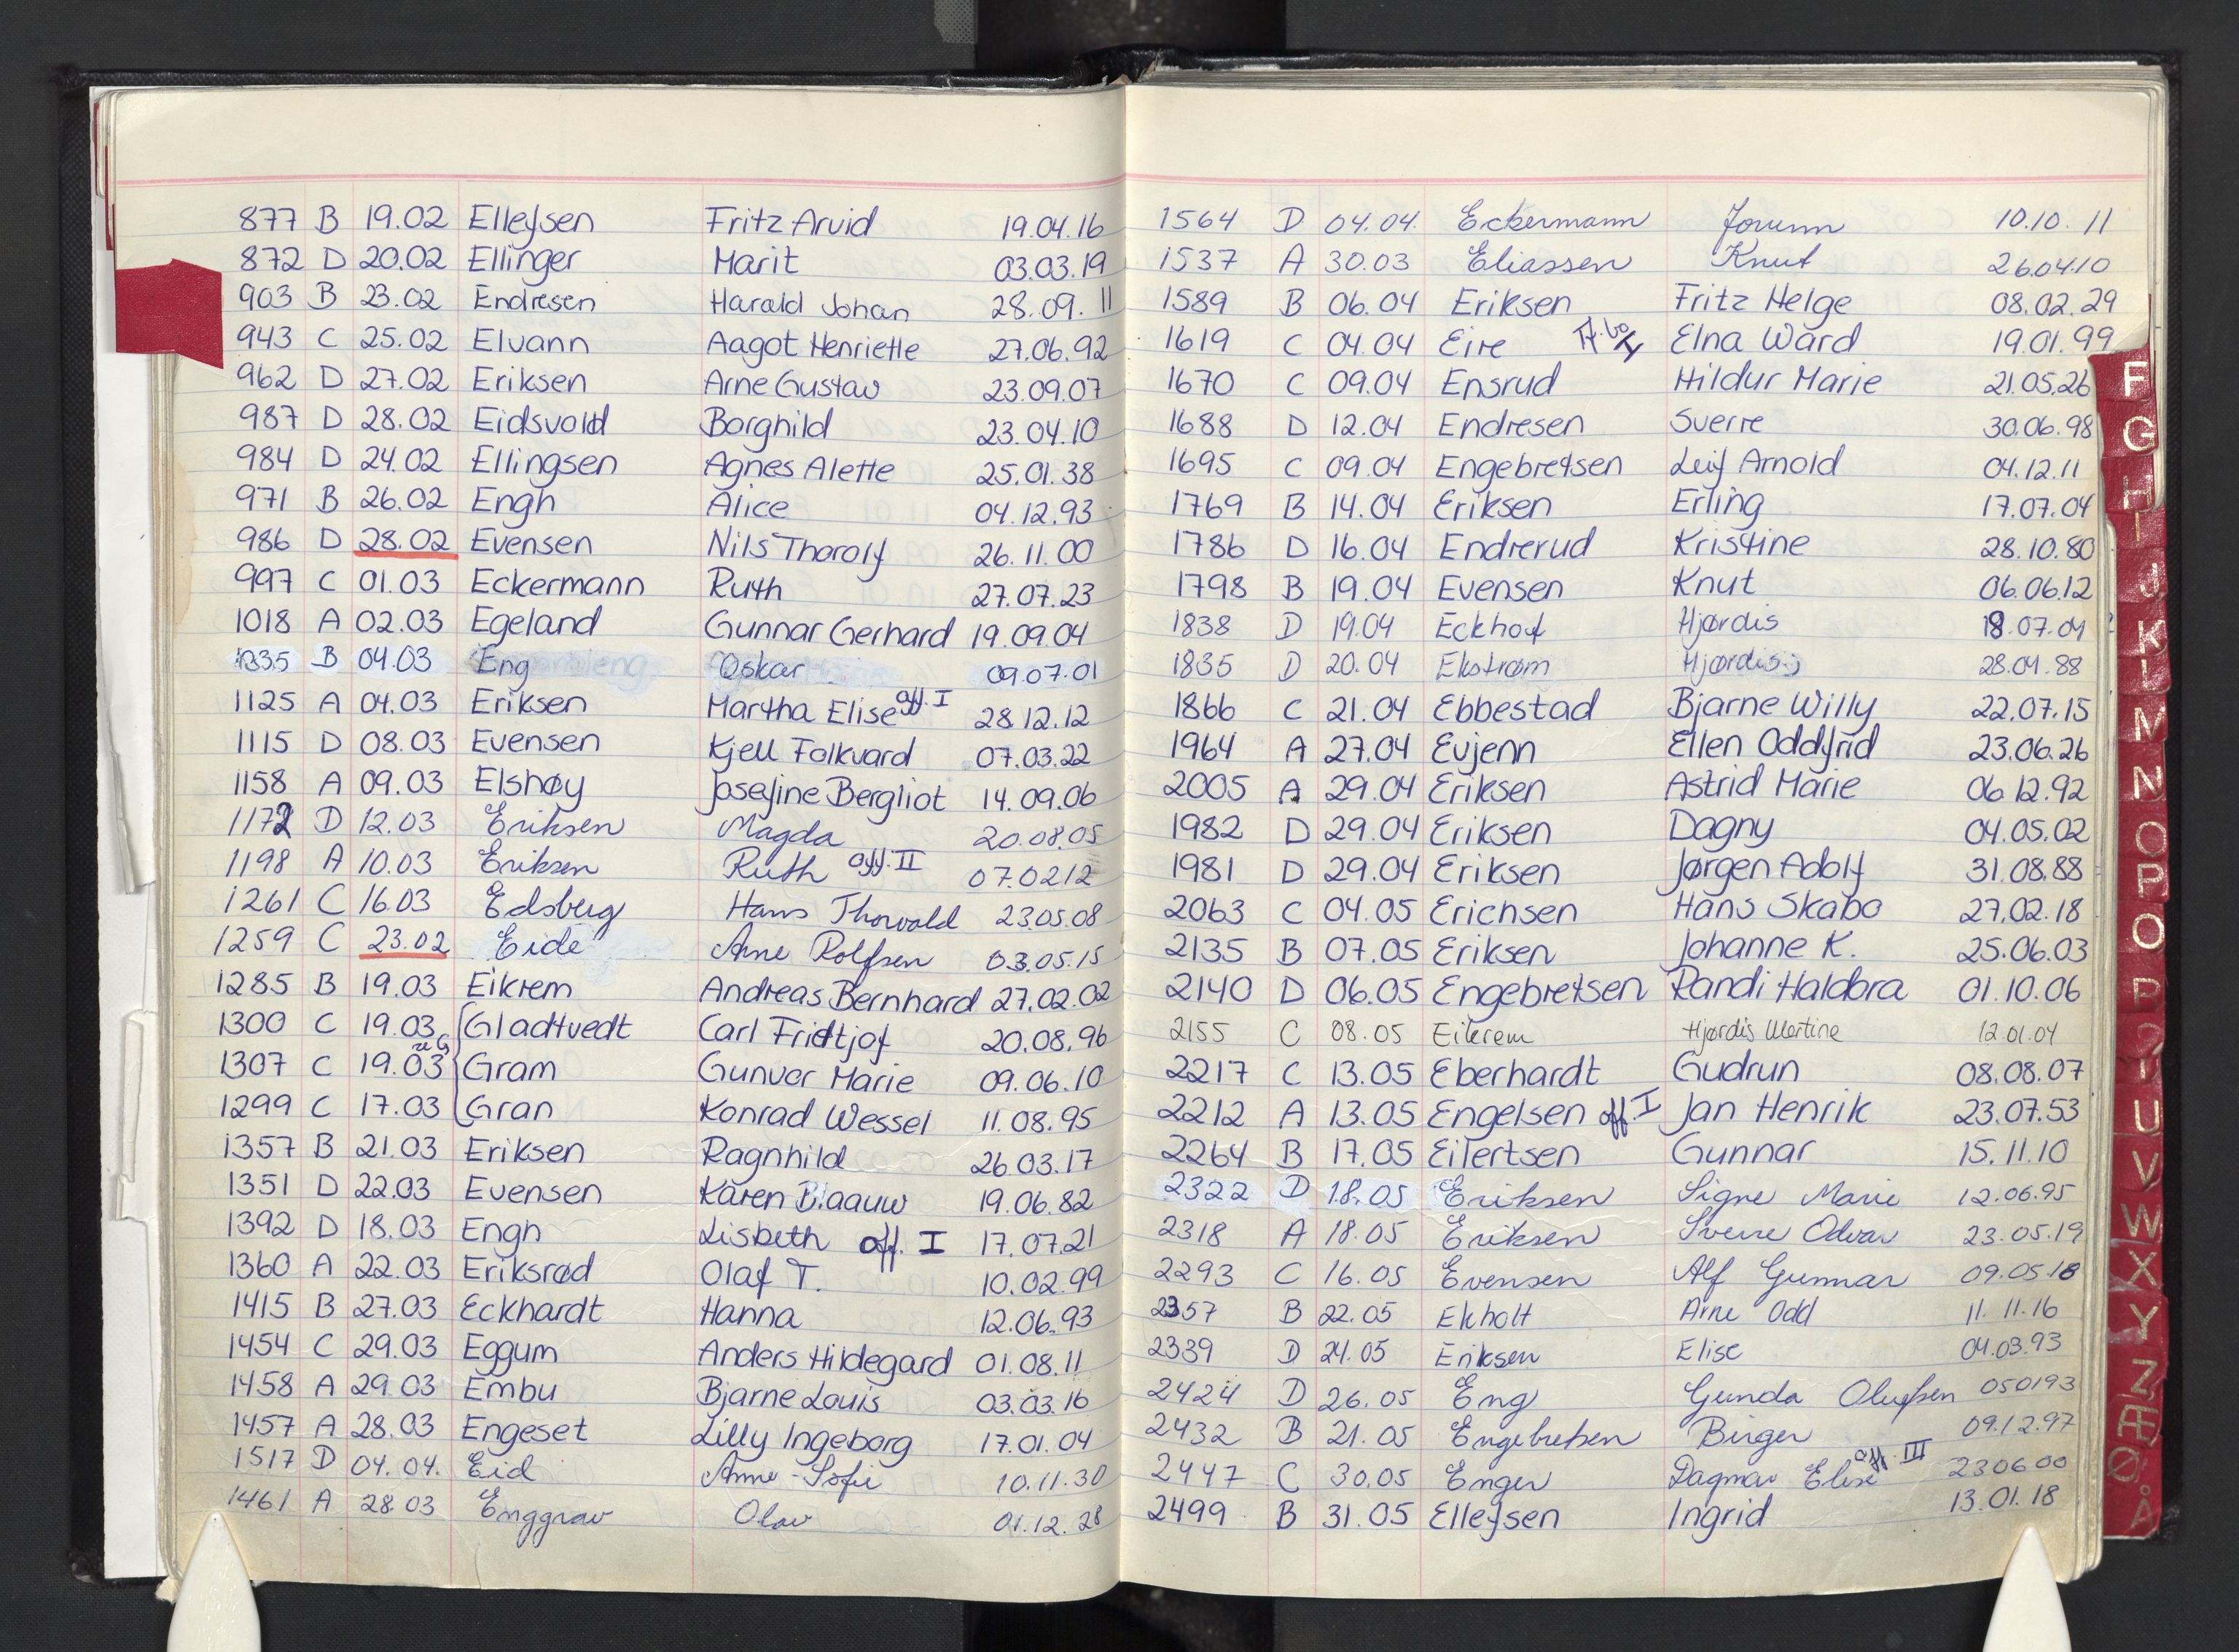 877 B 19.02 Ellefsen Fritz Arvid 19.04.16
872 D 20.02 Ellinger Marit 03.03.19
903 B 23.02 Endresen Harald Johan 28.09.11
943 C 25.02 Elvann Aagot Henriette 27.06.92
962 D 27.02 Eriksen Arne Gustav 23.09.07
987 D 28.02 Eidsvold Borghild 23.04.10
984 D 24.02 Ellingsen Agnes Alette 25.01.38
971 B 26.02 Engh Alice 04.12.93
986 D 28.02 Evensen Nils Thorolf 26.11.00
997 C 01.03 Eckermann Ruth 27.07.23
1018 A 02.03 Egeland Gunnar Gerhard 19.09.04
1035 B 04.03 Eng Oskar 09.07.01
1125 A 04.03 Eriksen Martha Elise aff. I 28.12.12
1115 D 08.03 Evensen Kjell Folkvard 07.03.22
1158 A 09.03 Elshøy Josefine Bergliot 14.09.06
1172 D 12.03 Eriksen Magda 20.08.05
1198 A 10.03 Eriksen Ruth aff. II 07.02.12
1261 C 16.03 Edsberg Hans Thorvald 23.05.08
1259 C 23.02 Eide Arne Rolfsen 03.05.15
1285 B 19.03 Eikrem Andreas Bernhard 27.02.02
1300 C 19.03 Gladtvedt Carl Fridtjof 20.08.96
1307 C 19.03 Gram Gunvor Marie 09.06.10
1299 C 17.03 Gran Konrad Wessel 11.08.95
1357 B 21.03 Eriksen Ragnhild 26.03.17
1351 D 22.03 Evensen Karen Blaauw 19.06.82
1392 D 18.03 Engh Lisbeth aff. I 17.07.21
1360 A 22.03 Eriksrød Olaf T. 10.02.99
1415 B 27.03 Eckhardt Hanna 12.06.93
1454 C 29.03 Eggum Anders Hildegard 01.08.11
1458 A 29.03 Embu Bjarne Louis 03.03.16
1457 A 28.03 Engeset Lilly Ingeborg 17.01.04
1517 D 04.04. Eid Anne-Sofie 10.11.30
1461 A 28.03 Enggrav Olav 01.12.28
1564 D 04.04. Eckermann Jorunn 10.10.11
1537 A 30.03 Eliassen Knut 26.04.10
1589 B 06.04 Eriksen Fritz Helge 08.02.29
1619 C 04.04 Eire Elna Ward 19.01.99
1670 C 09.04 Ensrud Hildur Marie 21.05.26
1688 D 12.04 Endresen Sverre 30.06.98
1695 C 09.04 Engebretsen Leif Arnold 04.12.11
1769 B 14.04 Eriksen Erling 17.07.04
1786 D 16.04 Endrerud Kristine 28.10.80
1798 B 19.04 Evensen Knut 06.06.12
1838 D 19.04 Eckhof Hjørdis 18.07.04
1835 D 20.04 Ekstrøm Hjørdis 28.04.88
1866 C 21.04 Ebbestad Bjarne Willy 22.07.15
1964 A 27.04 Evjenn Ellen Oddfrid 23.06.26
2005 A 29.04 Eriksen Astrid Marie 06.12.92
1982 D 29.04 Eriksen Dagny 04.05.02
1981 D 29.04 Eriksen Jørgen Adolf 31.08.88
2063 C 04.05 Erichsen Hans Skabo 27.02.18
2135 B 07.05 Eriksen Johanne K. 25.06.03
2140 D 06.05 Engebretsen Randi Haldora 01.10.06
2155 C 08.05 Eikrem Hjørdis Martine 12.01.04
2217 C 13.05 Eberhardt Gudrun 08.08.07
2212 A 13.05 Engelsen aff. I Jan Henrik 23.07.53
2264 B 17.05 Eilertsen Gunnar 15.11.10
2322 D 18.05 Eriksen Signe Marie 12.06.95
2318 A 18.05 Eriksen Sverre Odvar 23.05.19
2293 C 16.05 Evensen Alf Gunnar 09.05.18
2357 B 22.05 Ekholt Arne Odd 11.11.16
2339 D 24.05 Eriksen Elise 04.03.93
2424 D 26.05 Eng Gunda Olufsen 050193
2432 B 21.05 Engebretsen Birger 09.12.97
2447 C 30.05 Enger Dagmar Elise aff. III 230600
2499 B 31.05 Ellefsen Ingrid 13.01.18
F
G
H
I
J
K
L
M
N
O
P
O
P
U
V
W
X
Y
Z
Æ
Ø
Å